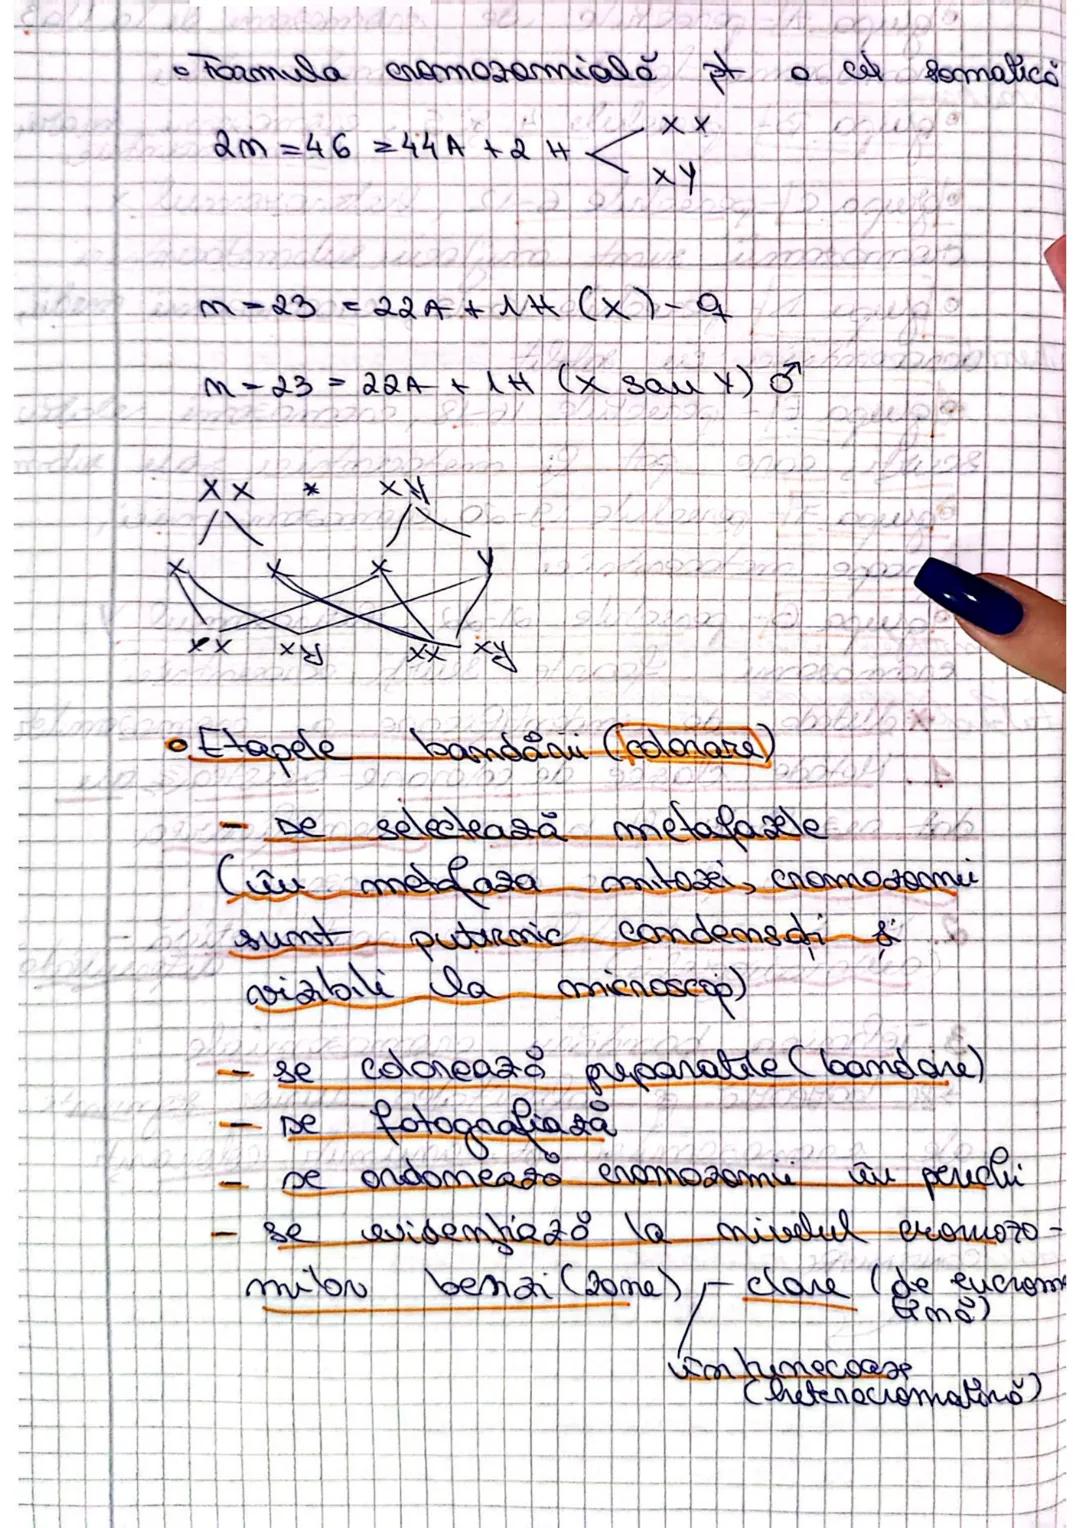 • Formula cromozomială pt o cel somatică
2n = 46 = 44A + 2 H < XX
XY
n = 23 = 22A + 1H (X) - ♀
n = 23 = 22A + 1H (X sau Y) ♂
XX * XY
X X X Y
XX XY XX XY
• Etapele bandării (colorare)
- se selectează metafazele
(în metafaza mitozei, cromozomii
sunt puternic condensați și
vizibili la microscop)
- se colorează preparatele (bandare)
- se fotografiază
- se ordonează cromozomii în perechi
- se evidențiază la nivelul cromozo-
milor benzi (zone) - clare (de eucroma
tină)
întunecoase
(heterocromatină)